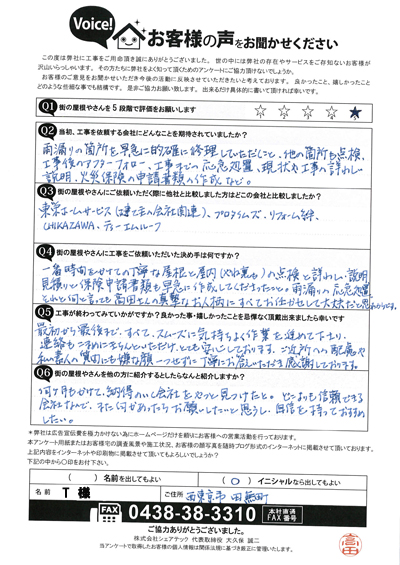 Voice!
お客様の声をお聞かせください
この度は弊社に工事をご用命頂き誠にありがとうございました。世の中には弊社の存在やサービスをご存知ないお客様が
沢山いらっしゃいます。その方たちに弊社をよく知って頂くためのアンケートにご協力頂けないでしょうか。
お客様のご意見をお聞かせいただき今後の活動に反映させていただきたいと考えております。良かったこと、嬉しかったこと
どのような些細な事でも結構です。是非ご協力お願い致します。出来るだけ具体的に書いて頂ければ幸いです。
Q1 街の屋根やさんを5段階で評価をお願いします ☆ ☆ ☆ ☆ ★
Q2 当初、工事を依頼する会社にどんなことを期待されていましたか?
雨漏りの箇所を早急に的確に修理していただくこと、他の箇所も点検、
工事後のアフターフォロー、工事までの応急処置、現状や工事の詳しい
説明、火災保険の申請書類の作成など。
Q3 街の屋根やさんにご依頼いただいた際に他社と比較しました方はどこの会社と比較しましたか?
東栄ホームサービス(建て主の会社関連)、プロタイムズ、リフォーム
CHIKAZAWA、ホームルーフ
Q4 街の屋根やさんに工事をご依頼いただいた決め手は何ですか?
一番時間をかけての丁寧な屋根と屋内の点検と詳しい説明
見積りと保険申請書類も早急に作成してくださったこと。雨漏りの応急処置
それと何と言っても高田さんの真摯なお人柄にすべてお任せして大丈夫だと思われたから。
Q5 工事が終わってみていかがですか?良かった事・嬉しかったことを忌憚なく頂戴出来ましたら幸いです
最初から最後まで、すべて、スムーズに気持ちよく作業を進めて下さり、
連絡もこまめにきちんとしていただけ、とても安心しております。ご近所への配慮や
私の素人の質問にも嫌な顔一つせずに丁寧にお答えいただき感謝しております。
Q6 街の屋根やさんを他の方に紹介するとしたらなんと紹介しますか?
何ヶ月もかけて、納得のいく会社をやっと見つけたこと。とってもお信頼できる
会社なんで、また何かあったらお願いしたいと思うし、自信を持っておすすめ
したい。
*弊社は広告宣伝費を極力かけない為にホームページだけを頼りにお客様への営業活動を行っております。
本アンケート用紙またはお客様宅の調査風景や施工状況、お客様の顔写真を随時ブログ形式のインターネットに掲載させて頂いております。
上記内容をインターネットや印刷物に掲載させて頂いてもよろしいでしょうか?
下記の中から〇印をお付け下さい。
( ) 名前を出してもよい ( ○ ) イニシャルなら出してもよい
名前 T 様 ご住所 西東京市 田無町
FAX 0438-38-3310 本社直通 FAX番号
ご協力ありがとうございました。
株式会社シェアテック 代表取締役 大久保 誠二
当アンケートで取得したお客様の個人情報は関係法規に基づき厳正に管理いたします。
高田